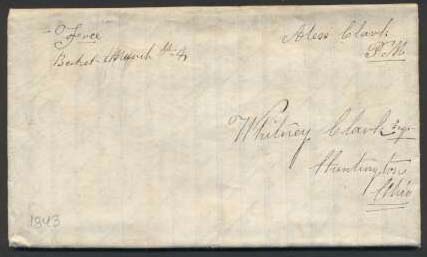 Free
Becket March
Alex Clark
P.M.
Whitney Clark Esqr
Huntington
Ohio
1843